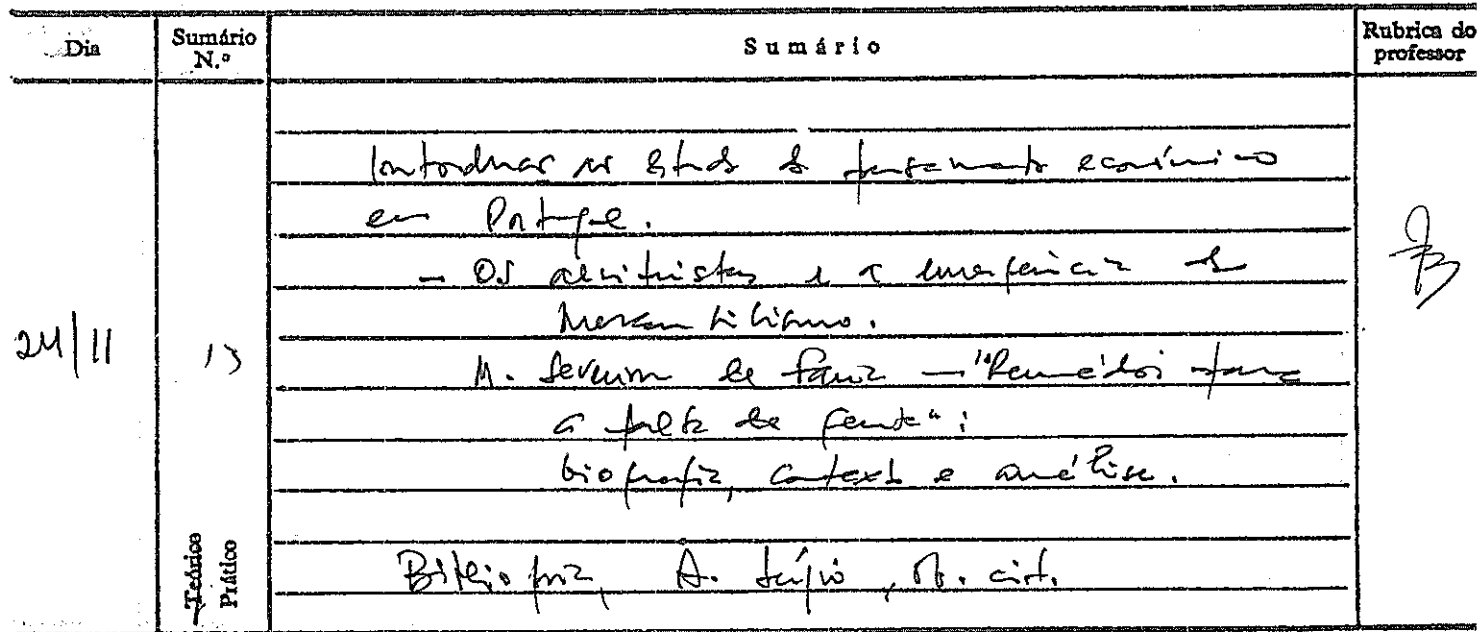 Dia
Sumário N.º
Sumário
Rubrica do professor
Introduçao ao Estudo do pensamento económico
em Portugal.
- Os alvitristas e a emergência do
Mercantilismo.
24/11
13
M. Severim de Faria - "Remédios para
a falta de gente":
biografia, contexto e análise.
Teórico
Prático
Bibliografia, A. Sérgio, Ob. cit.